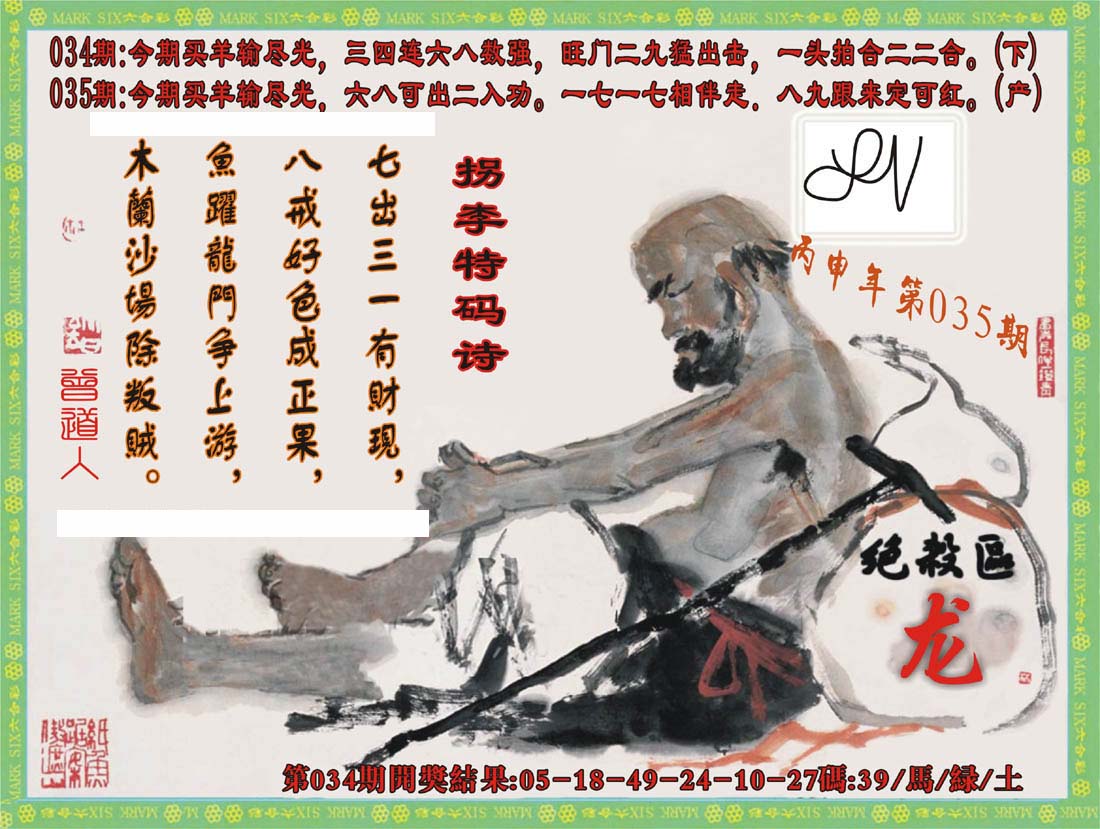 MARK SIX六合彩
034期:今期买羊输尽光，三四连六八数强，旺门二九猛出击，一头拍合二二合。(下)
035期:今期买羊输尽光，六八可出二入功。一七一七相伴走．八九跟来定可红。(产)
拐李特码诗
七出三一有財現，
八戒好色成正果，
魚躍龍門争上游，
木蘭沙場除叛贼。
曾道人
丙申年第035期
绝殺區
龙
第034期開獎結果:05-18-49-24-10-27碼:39/馬/緑/土